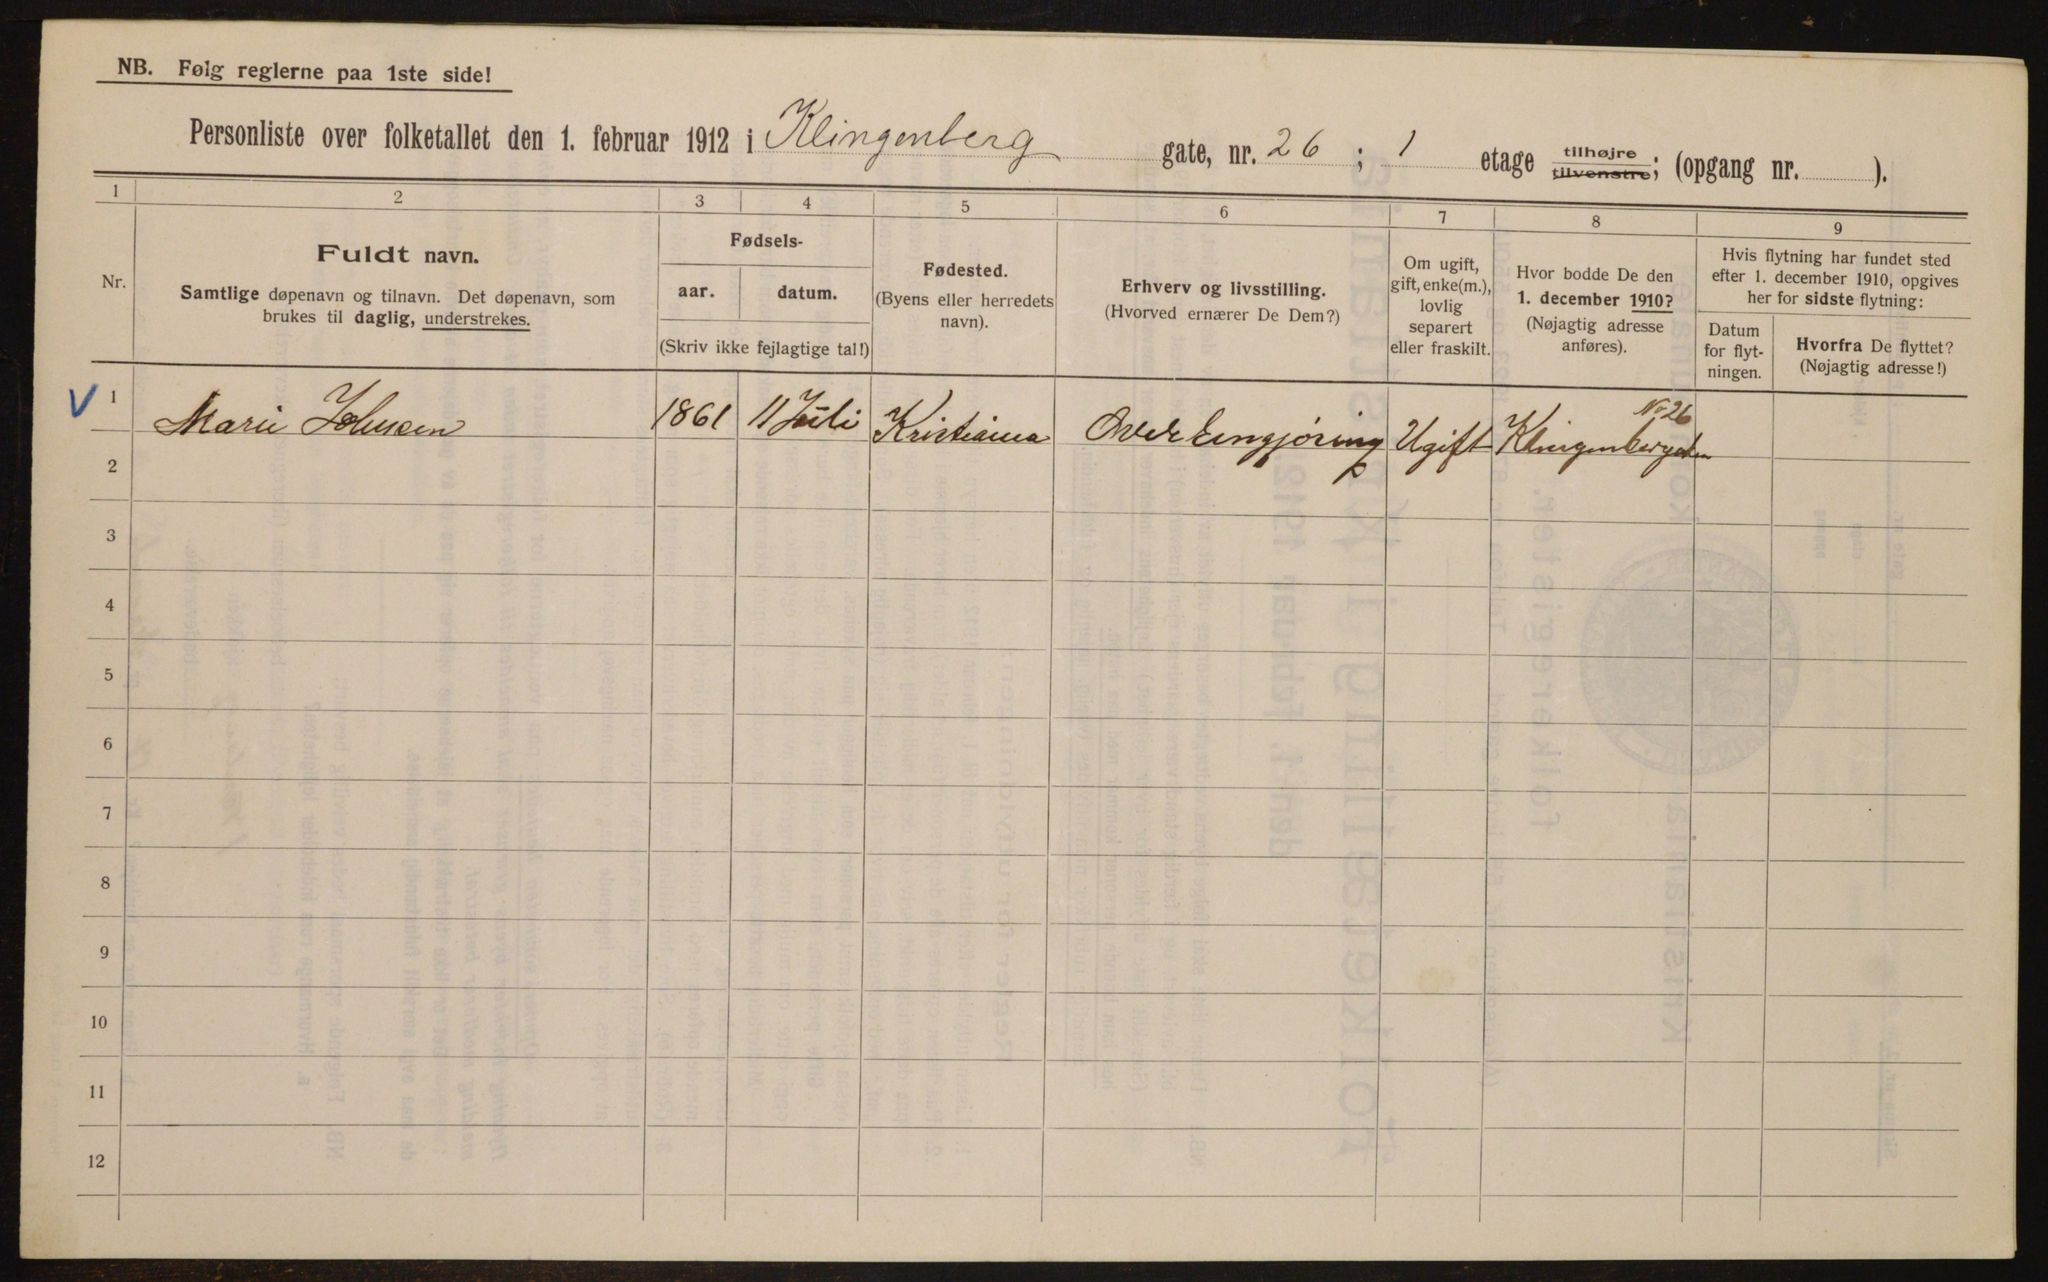 NB. Følg reglerne paa 1ste side!
Personliste over folketallet den 1. februar 1912 i Klingenberg gate, nr. 26 ; 1 etage tilhøjre tilvenstre; (opgang nr. ).
1 2 3 4 5 6 7 8 9
Nr.
Fuldt navn.
Samtlige døpenavn og tilnavn. Det døpenavn, som
brukes til daglig, understrekes.
Fødsels-
aar. datum.
(Skriv ikke fejlagtige tal!)
Fødested.
(Byens eller herredets
navn).
Erhverv og livsstilling.
(Hvorved ernærer De Dem?)
Om ugift,
gift, enke(m.),
lovlig
separert
eller fraskilt.
Hvor bodde De den
1. december 1910?
(Nøjagtig adresse
anføres).
Hvis flytning har fundet sted
efter 1. december 1910, opgives
her for sidste flytning:
Datum
for flyt-
ningen.
Hvorfra De flyttet?
(Nøjagtig adresse!)
V 1 Marie Johnsen 1861 11 Juli Kristiania Ugift No 26
2
3
4
5
6
7
8
9
10
11
12